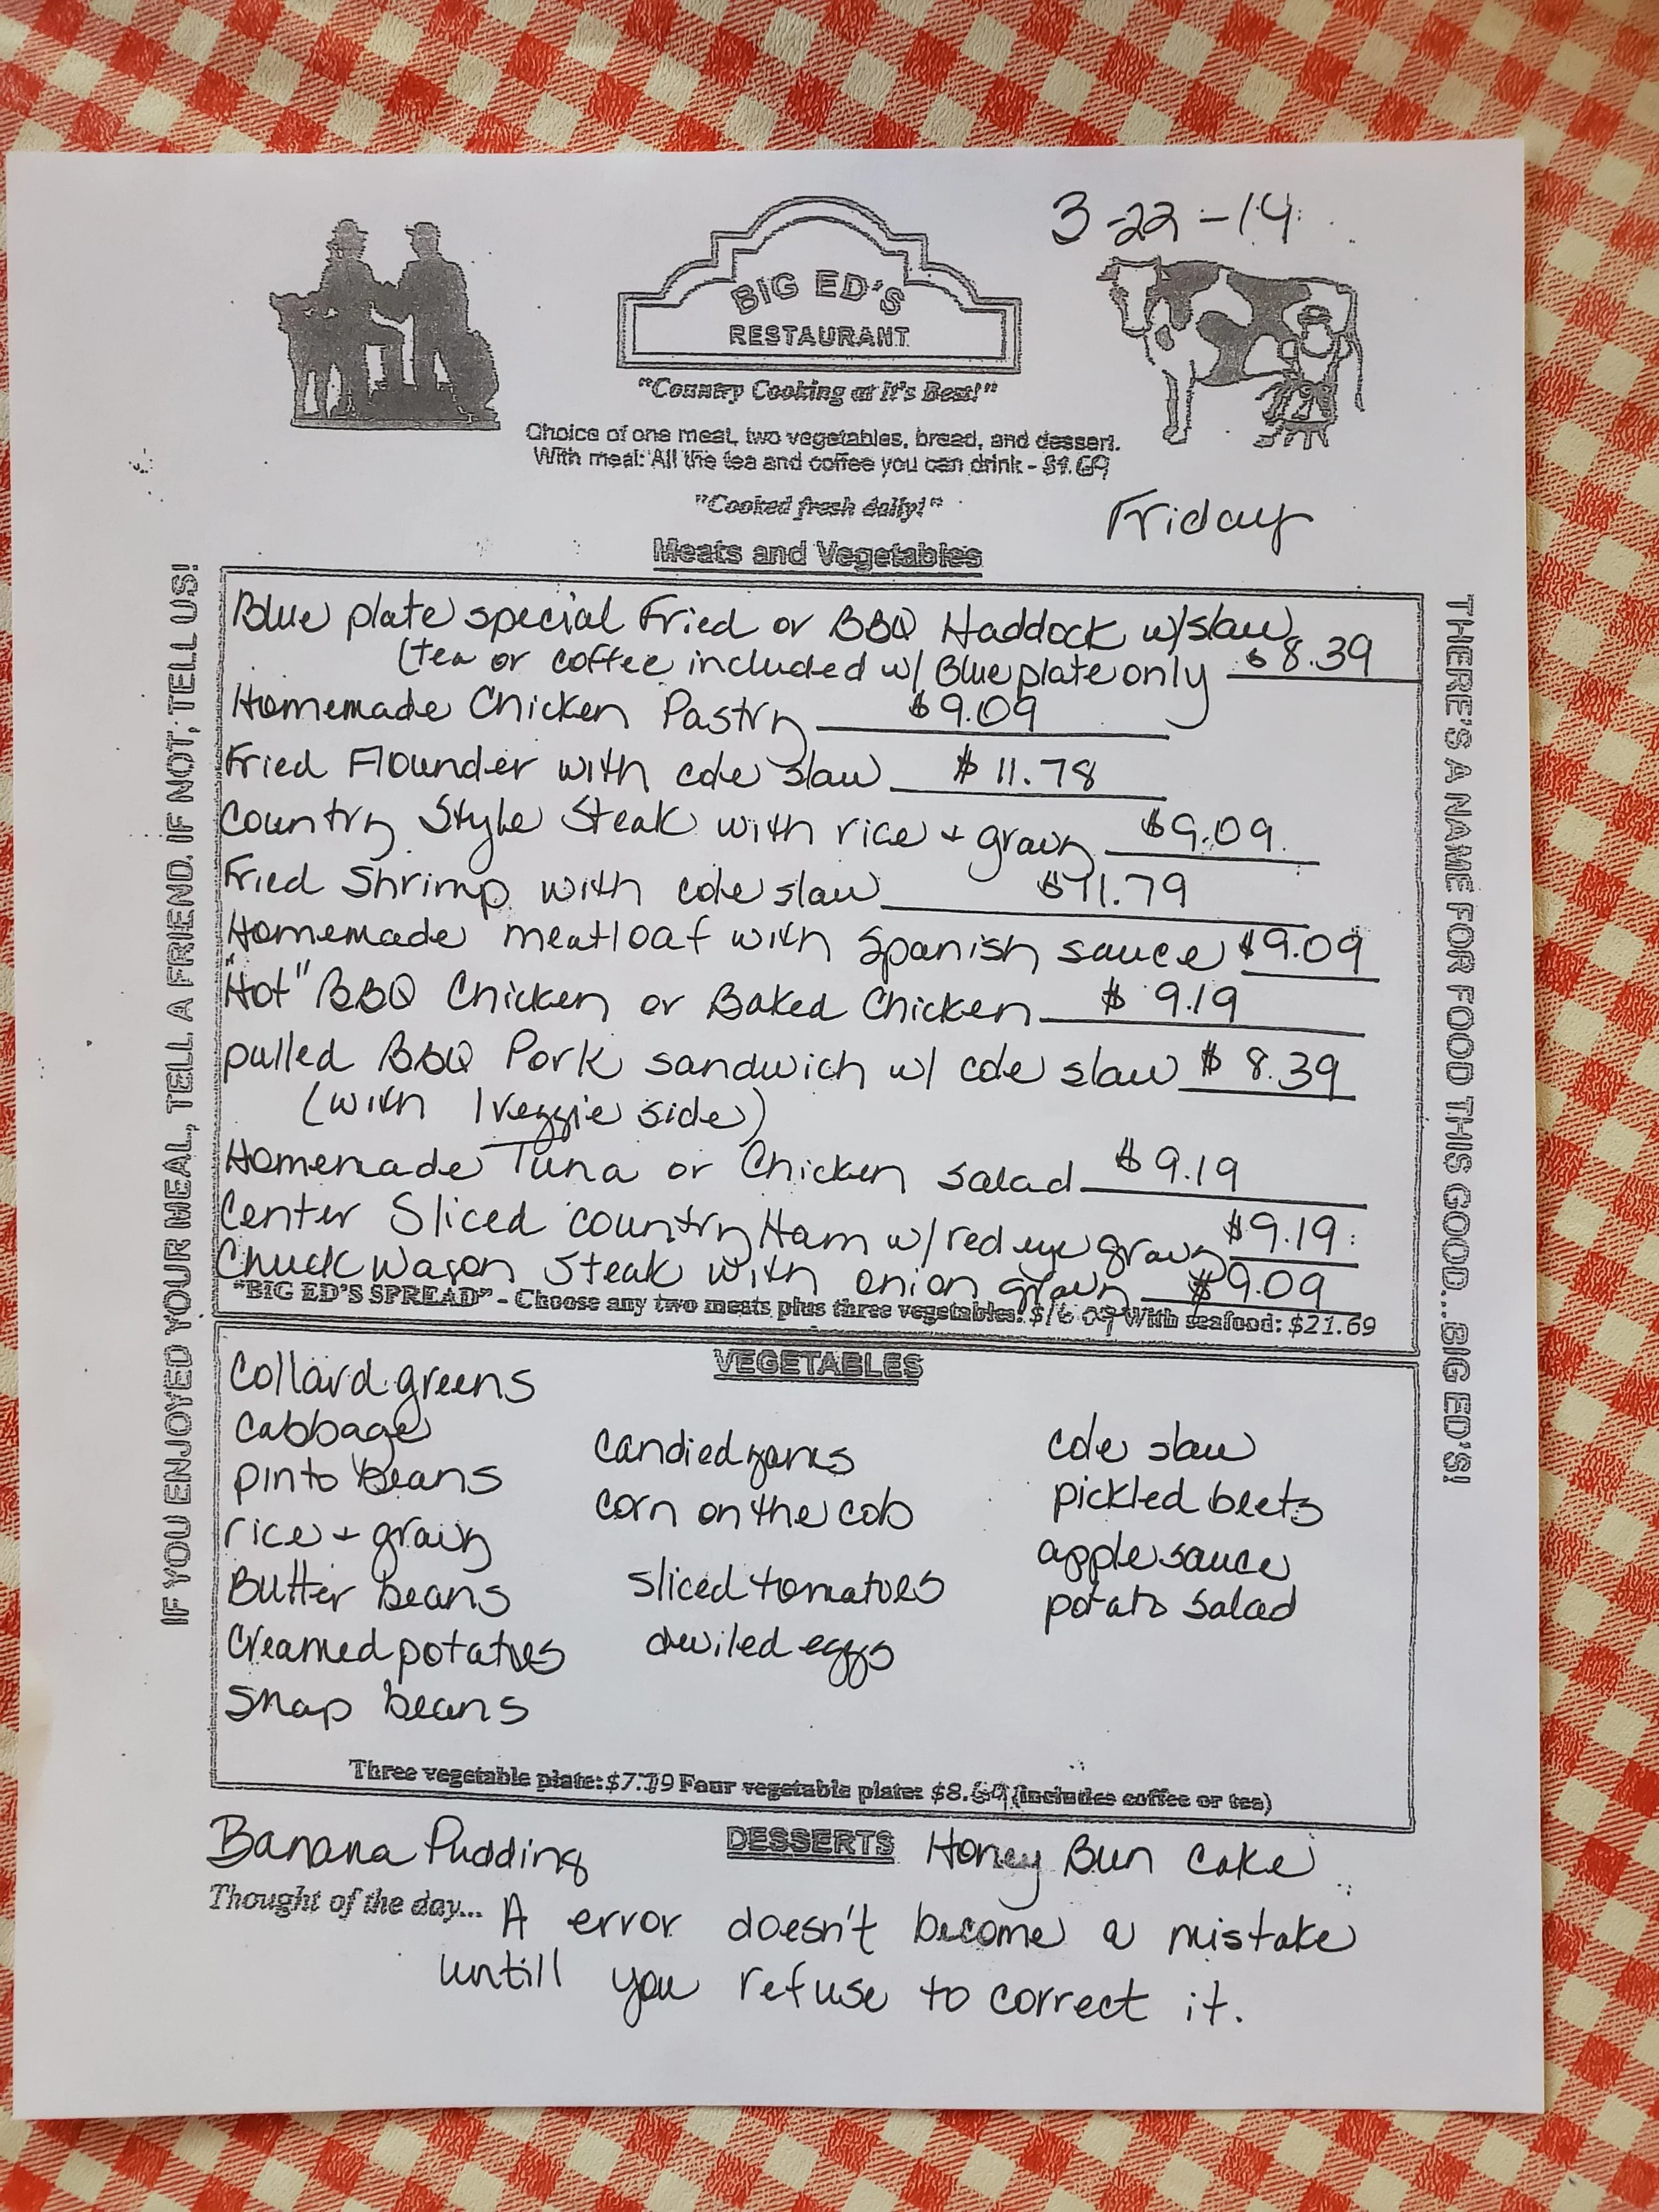 3-22-14
BIG ED'S
RESTAURANT
"Country Cooking at it's Best!"
Choice of one meat, two vegetables, bread, and dessert.
With meal: All the tea and coffee you can drink - $1.69
"Cooked fresh daily!"
Friday
Meats and Vegetables
IF YOU ENJOYED YOUR MEAL, TELL A FRIEND. IF NOT, TELL US!
Blue plate special Fried or BBQ Haddock w/slaw
(tea or coffee included w/ Blue plate only $8.39
Homemade Chicken Pastry $9.09
Fried Flounder with cole slaw $11.78
Country Style Steak with rice + gravy $9.09
Fried Shrimp with cole slaw $11.79
Homemade meatloaf with Spanish sauce $9.09
"Hot" BBQ Chicken or Baked Chicken $9.19
pulled BBQ Pork sandwich w/ cole slaw $8.39
(with 1 veggie side)
Homemade Tuna or Chicken salad $9.19
Center Sliced country Ham w/ red eye gravy $9.19
Chuck Wagon Steak with onion gravy $9.09
"BIG ED'S SPREAD" - Choose any two meats plus three vegetables: With seafood: $21.69
THERE'S A NAME FOR FOOD THIS GOOD...BIG ED'S!
VEGETABLES
Collard greens
Cabbage
pinto beans
rice + gravy
Butter beans
Creamed potatoes
Snap beans
candied yams
corn on the cob
sliced tomatoes
deviled eggs
cole slaw
pickled beets
apple sauce
potato salad
Three vegetable plate: $7.79 Four vegetable plate: (includes coffee or tea)
DESSERTS
Banana Pudding
Honey Bun Cake
Thought of the day... A error doesn't become a mistake
untill you refuse to correct it.